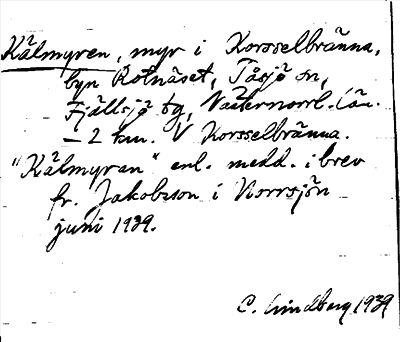 Kälmyren, myr i Korsselbränna,
byn Rotnäset, Tåsjö sn,
Fjällsjö tg, Västernorrl. län.
– 2 km. V Korsselbränna.
"Kälmyran" enl. medd. i brev
fr. Jakobsson i Norrsjön
juni 1939.
C. Lindberg 1939